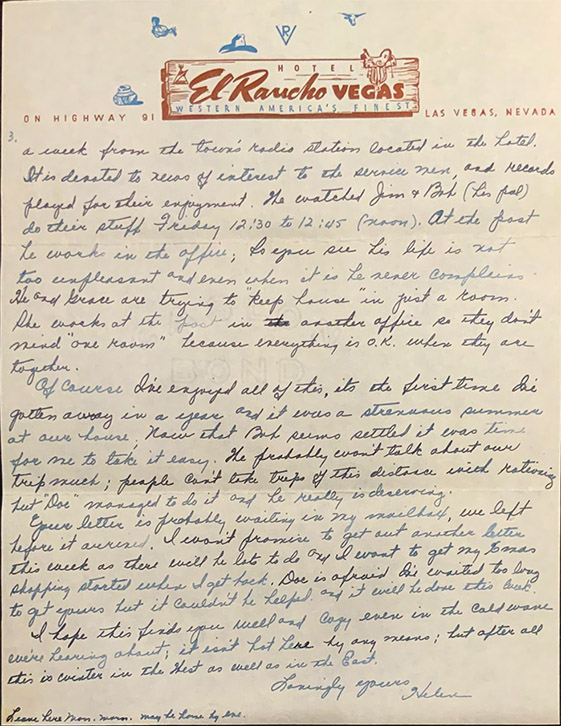 HOTEL
El Rancho VEGAS
WESTERN AMERICA'S FINEST
ON HIGHWAY 91
LAS VEGAS, NEVADA
3.
a week from the town's radio station located in the hotel.
It is devoted to news of interest to the service men, and records
played for their enjoyment. We watched Jim & Bob (his pal)
do their stuff Friday 12:30 to 12:45 (noon). At the post
he works in the office; so you see his life is not
too unpleasant and even when it is he never complains.
He and Grace are trying to keep house in just a room.
She works at the post in another office so they don't
mind "one room" because everything is O.K. when they are
together.
Of course I've enjoyed all of this, its the first time I've
gotten away in a year and it was a strenuous summer
at our house. Now that Bob seems settled it was time
for me to take it easy. We probably won't talk about our
trip much; people can't take trips of this distance with rationing
but "Doc" managed to do it and he really is deserving.
Your letter is probably waiting in my mailbox, we left
before it arrived. I won't promise to get out another letter
this week as there will be lots to do and I want to get my Xmas
shopping started when I get back. Doc is afraid I've waited too long
to get yours but it couldn't be helped and it will be done this week.
I hope this finds you well and cozy even in the cold wave
we're hearing about; it isn't hot here by any means; but after all
this is winter in the West as well as in the East.
Lovingly yours
Helen
Leave here Mon. morn. may be home by eve.